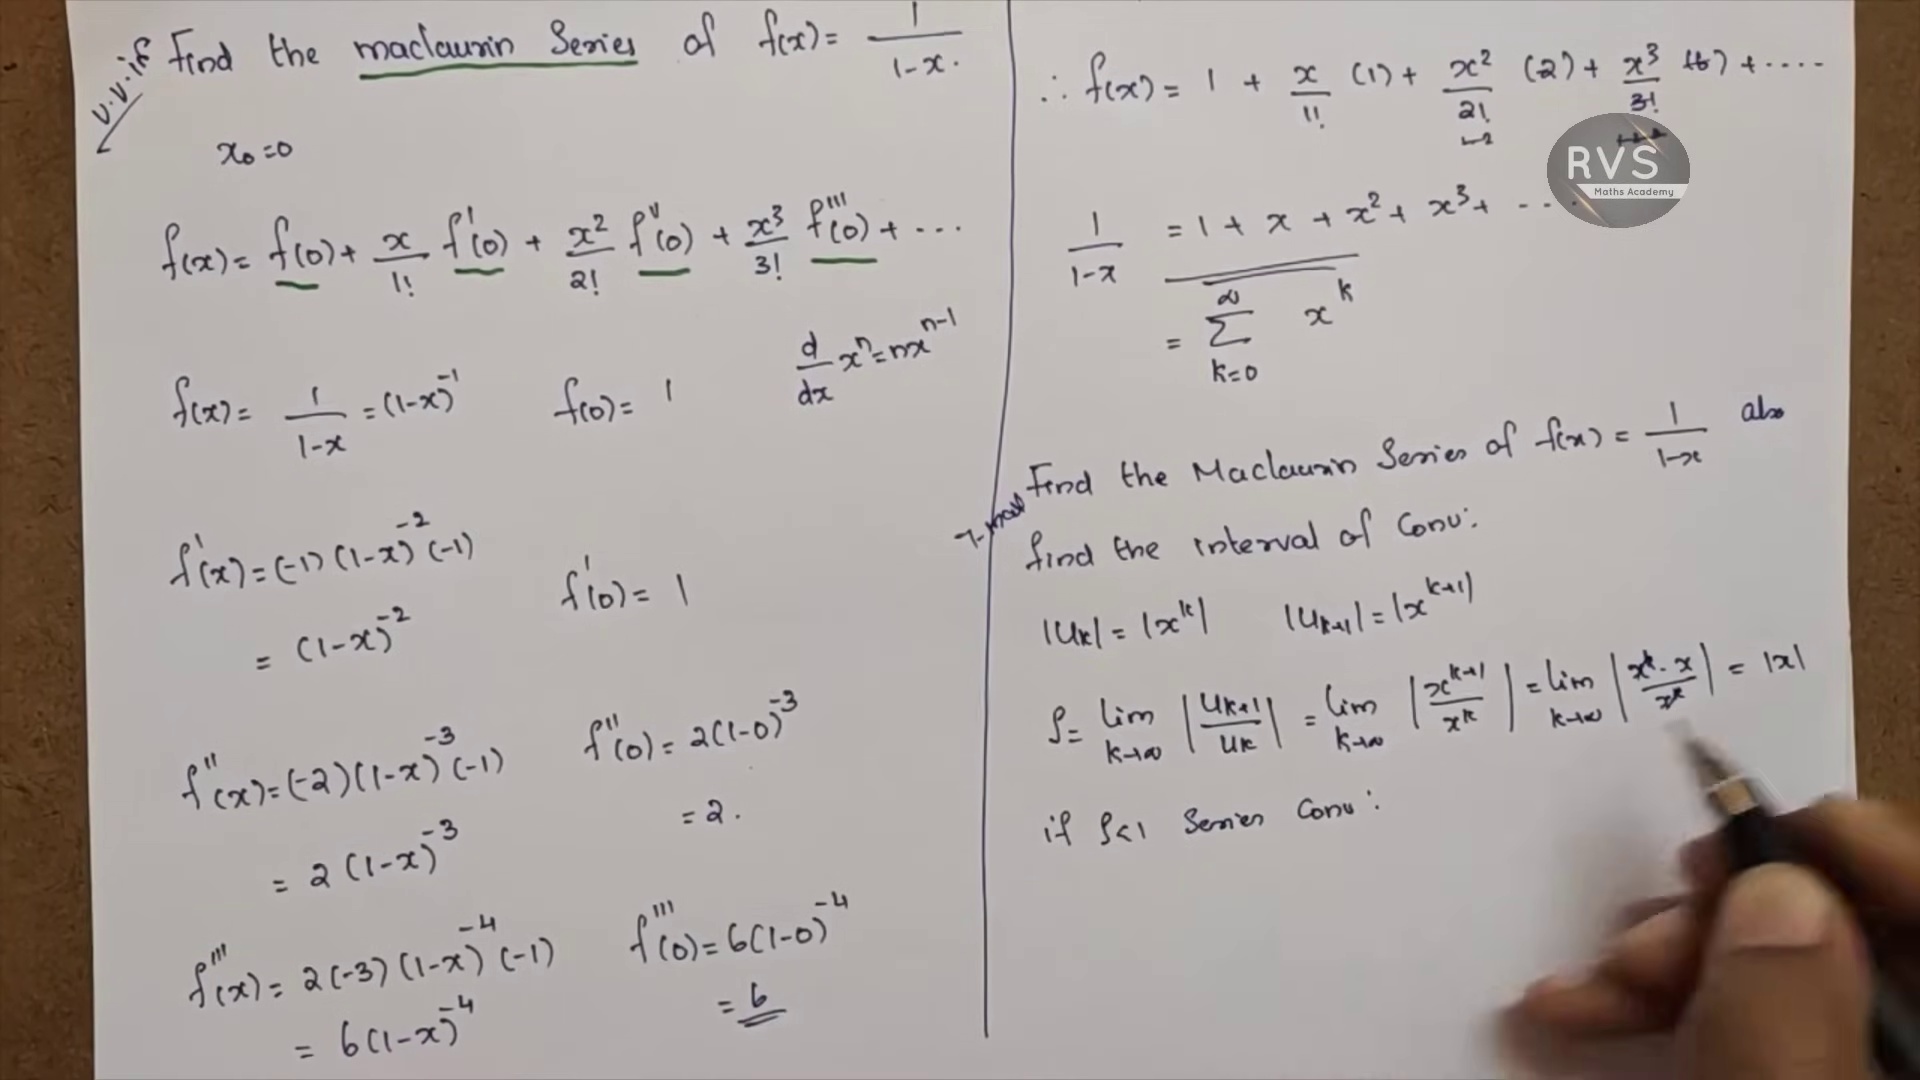 v.v.if Find the maclaurin Series of f(x) = 1/(1-x).
x₀=0
f(x) = f(0) + x/1! f'(0) + x²/2! f''(0) + x³/3! f'''(0) + ...
d/dx xⁿ = nxⁿ⁻¹
f(x) = 1/(1-x) = (1-x)⁻¹ f(0) = 1
f'(x) = (-1)(1-x)⁻²(-1) f'(0) = 1
= (1-x)⁻²
f''(x) = (-2)(1-x)⁻³(-1) f''(0) = 2(1-0)⁻³
= 2(1-x)⁻³ = 2.
f'''(x) = 2(-3)(1-x)⁻⁴(-1) f'''(0) = 6(1-0)⁻⁴
= 6(1-x)⁻⁴ = 6
∴ f(x) = 1 + x/1! (1) + x²/2! (2) + x³/3! (6) + ....
RVS
Maths Academy
1/(1-x) = 1 + x + x² + x³ + ...
= ∑_{k=0}^{∞} x^k
Find the Maclaurin Series of f(x) = 1/(1-x) also
find the interval of Conv:
|u_k| = |x^k| |u_{k+1}| = |x^{k+1}|
ρ = lim_{k→∞} |u_{k+1}/u_k| = lim_{k→∞} |x^{k+1}/x^k| = lim_{k→∞} |x^k·x/x^k| = |x|
if ρ<1 Series Conv: